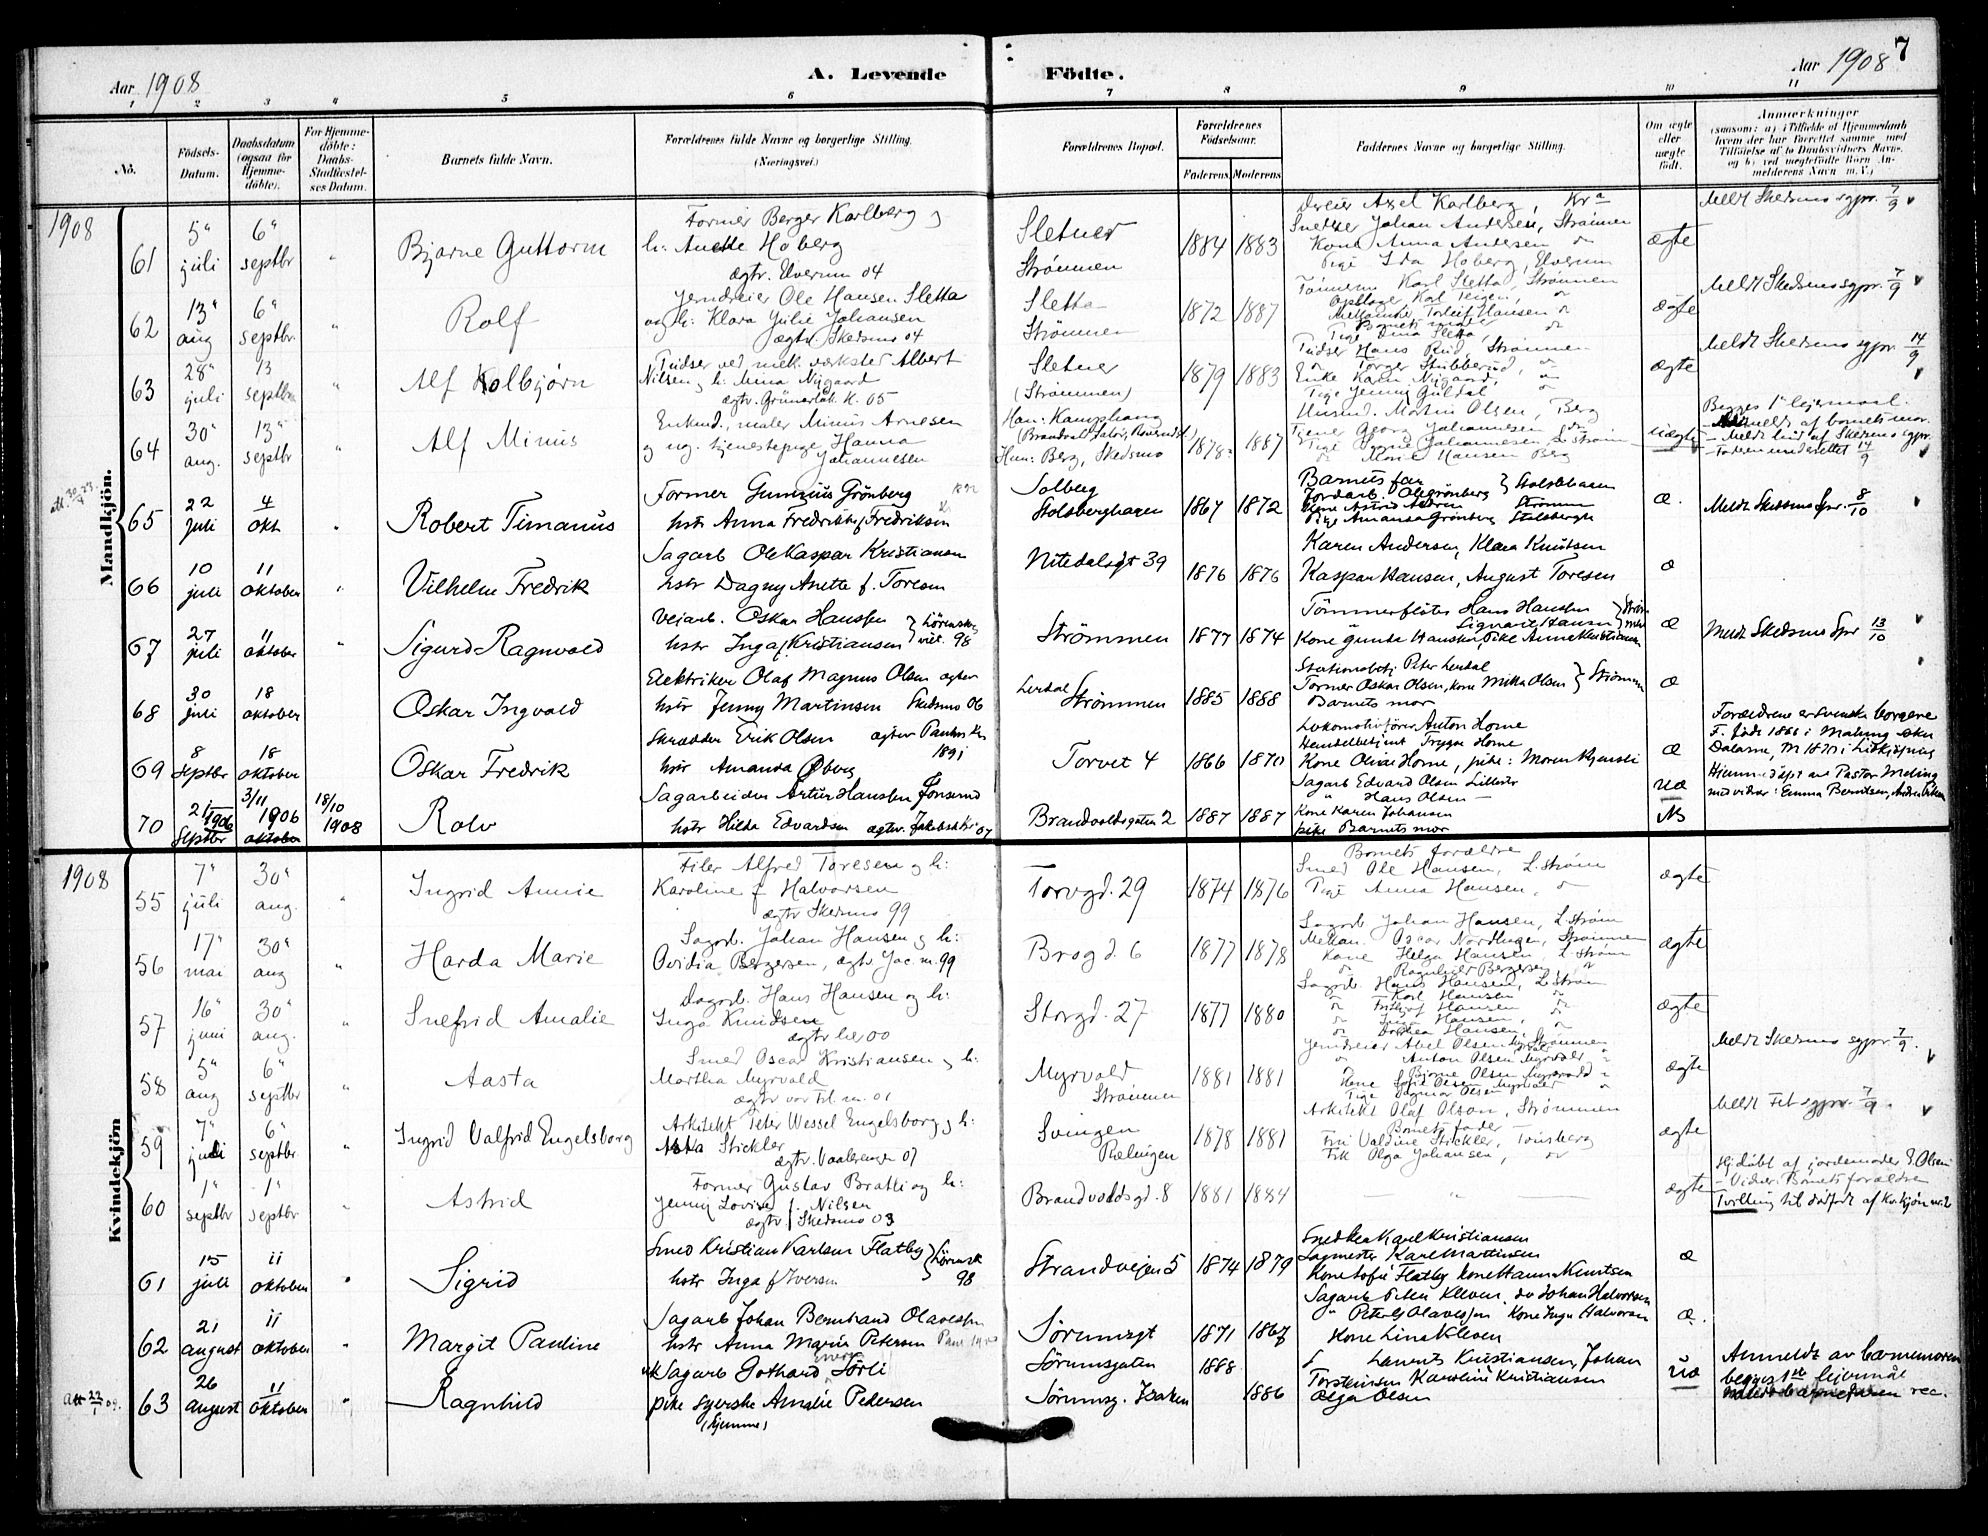 7
Aar 1908
A. Levende Födte.
Aar 1908
1 2 3 4 5 6 7 8 9 10 11
No.
Födsels-
Datum.
Daabsdatum
(ogsaa for
Hjemme-
döbte).
For Hjemme-
döbte:
Daabs-
Stadfæstel-
ses Datum.
Barnets fulde Navn.
Forældrenes fulde Navne og borgerlige Stilling.
(Næringsvei.)
Forældrenes Bopæl.
Forældrenes
Födselsaar.
Faderens Moderens
Faddernes Navne og borgerlige Stilling.
Om ægte
eller
uægte
födt.
Anmærkninger
(saasom: a) i Tilfælde af Hjemmedaab
hvem der har forrettet samme med
Tilföielse af to Daabsvidners Navne,
og b) ved uægtefödte Börn An-
melderens Navn m. V.)
1908
Mandkjön.
61
5" juli
6" septbr
Bjarne Guttorm
Former Berger Karlberg og
h: Anette Høberg
ægtv. Elverum 04
Sletner
Strömmen
1884 1883
Dreier Axel Karlberg, Kr.a
Snedker Johan Andersen, Strømmen
Kone Anna Andersen do
Pige Ida Høberg, Elverum
ægte
Meldt Skedsmo sgpr. 7/9
62
13" aug
6" septbr.
Rolf
Jerndreier Ole Hansen Sletta
og h: Klara Julie Johansen
ægtv. Skedsmo 04
Sletta
Strömmen
1872 1887
Karl Sletta, Strömmen
Hansen do
Sletta, do
ægte
Meldt Skedsmo sgpr. 7/9
63
28" juli
13 septbr
Alf Kolbjørn
ved mek. værksted Albert
Nilsen og h: Anna Nygaard
ægtv. Grünerløk. K. 05
Sletner
(Strömmen)
1879 1883
Hans Rud, Strömmen
Torger Stubberud, do
Enke Karen Nygaard, do
Pige Jenny Guldal do
ægte
Meldt Skedsmo sgpr. 14/9
64
30" aug.
13" septbr
Alf Minius
Enkmd., maler Minius Arnesen
og ug. tjenestepige Hanna
Johannesen
Han: Kangshaug
Hun: Berg, Skedsmo
1878 1887
Husmd. Martin Olsen, Berg
Georg Johannesen do
Hansen Berg
uægte
Begges 1ste leiermaal.
Anmeldt af barnets mor.
Meldt lind af Skedsmo sgpr.
Faderen underrettet 14/9
65
22 juli
4 okt
Robert Timanus
Former Gunnius Grönberg
hstr Anna Fredrikke f. Fredriksen
Solberg
Stolsberghagen
1867 1872
Barnets far
Jordarb. Ole Grönberg } Stolsbhagen
Kone Astrid Strömm
Pige Amanda Grönberg Stolsbergh
æ.
Meldt Skedsmo Spr. 8/10
66
10 juli
11 oktober
Vilhelm Fredrik
Sagarb Ole Kaspar Kristiansen
hstr Dagny Anette f. Toresen
Nitedalsgt 39
1876 1876
Karen Andersen, Klara Knutsen
Kaspar Hansen, August Toresen
æ
67
27 juli
11 oktober
Sigurd Ragnvald
Veiarb. Oskar Hanssen
hstr Inga f. Kristiansen } Lörenskog viet. 98
Strömmen
1877 1874
Tömmerfløter Hans Hanssen
Signart Hansen
Kone Gunda Hanssen, Pike Anne Kristiansen
æ
Meldt Skedsmo Spr 13/10
68
30 juli
18 oktober
Oskar Ingvald
Elektriker Olaf Magnus Olsen ægtev
hstr Jenny Martinsen Skedsmo 06
Lerdal Strömmen
1885 1888
Stationsbetj. Peter Lerdal
Former Oskar Olsen, kone Mikka Olsen } Strömmen
Barnets mor
æ
69
8 Septbr
18 oktober
Oskar Fredrik
Skrædder Erik Olsen ægtev Paulus K.
1891
hstr Amanda Öberg
Torvet 4
1866 1870
Lokomotivfører Anton Horne
Handelbetjent Trygve Horne
Kone Olivie Horne, pike: Moren Kjenski
æ
Forældrene er svenske borgere
F. född 1866 i Malung sken
Dalarne, M 1870 i Lidköping
70
21/1906 Septbr
3/11 1906 oktober
18/10 1908
Rolv
Sagarbeider Artur Hanssen Jonsrud
hstr Hilda Edvardsen ægtev. Jakobs K. 07
Brandvoldsgaten 2
1887 1887
Sagarb Edvard Olsen Lilleström
" Hans Olsen —
Kone Karen Johansen
pike Barnets mor
uæ
NB
Hjemmedøpt av Pastor Meling
med vidner: Emma Berntsen,
1908
Kvindekjön
55
7" juli
30" aug.
Ingrid Annie
Filer Alfred Toresen og h:
Karoline f Halvorsen
ægtv Skedsmo 99
Torvgd. 29
1874 1876
Barnets forældre
Smed Ole Hansen, L.strøm
Pige Anna Hansen, do
ægte
56
17" mai
30" aug
Harda Marie
Sagarb. Johan Hansen og h:
Ovidia Bergersen, ægtv. Jac. m. 99
Brogd. 6
1877 1878
Sagarb Johan Hansen, L.strøm
Mekan. Oscar Nordhagen, Strømmen
Kone Helga Hansen, L.strøm
do Ragnhild Bergersen, do
ægte
57
16" juni
30" aug.
Snefrid Amalie
Dagarb. Hans Hansen og h:
Inga Knudsen
ægtv her 00
Storgd. 27
1877 1880
Sagarb. Hans Hansen, L.strøm
do Karl Hansen do
do Fritjof Hansen do
do Hansen, do
do Dorthea Hansen, do
ægte
58
5" aug
6" septbr
Aasta
Smed Oscar Kristiansen og h:
Martha Myrvold
ægtv vor Frl. m. 01
Myrvold
Strömmen
1881 1881
Jerndreier Abel Olsen Strømmen
Anton Olsen Myrvold
Bjarne Olsen Myrvold
Sofie Olsen Myrvold
Pige Dagmar Olsen
ægte
Meldt Skedsmo sgpr. 7/9.
59
7" juli
6" septbr.
Ingrid Valfrid Engelsborg
Arkitekt Peter Wessel Engelsborg og h:
Asta Stickler
ægtv. Vaalerengen 07
Svingen
Rælingen
1878 1881
Arkitekt Olaf Olson, Strömmen
Barnets fader —
Fru Valdine Stickler, Tönsberg
Frk Olga Johansen, do
ægte
Meldt Fet sgpr. 7/9.
60
1" septbr
1" septbr
Astrid
Former Gustav Bratli og h:
Jenny Lovise f. Nilsen
ægtv. Skedsmo 03
Brandvoldsgd. 8
1881 1884
— " —
ægte
Hj.döbt af jordemoder E. Olsen
Vidner: Barnets forældre
Tvilling til dødfödt af Kv.kjön nr. 2
61
15 juli
11 oktober
Sigrid
Smed Kristian Karlsen Flatby
hstr Inga f Iversen } Lörensk 98
Strandveien 5
1874 1879
Snedker Karl Kristiansen
Sagmester Karl Martinsen
Kone Sofie Flatby Kone Hanna Knutsen
æ
62
21 august
11 oktober
Margit Pauline
Sagarb Johan Berntrand Olavessen
hstr Anna Marie Petersen
Sörumsgt
1871 1867
Sagarb Peter Kleven, do Johan Halvorsen
" Peter G Olavessen Kone Inga Halvorsen
Kone Lina Kleven
æ.
63
26 august
11 oktober
Ragnhild
uk Sagarb Gothard Sörli
pike syerske Amalie Pedersen
(hjemme)
Sörumsgaten
Sörumsg.
1888 1886
Laurits Kristiansen, Johan
Torstensen Karoline Kristiansen
Olga Olsen
uæ
Anmeldt av barnemoren
begges 1ste leiermål
rec.